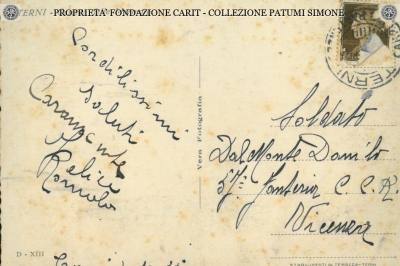 TERNI - PROPRIETA' FONDAZIONE CARIT - COLLEZIONE PATUMI SIMONE
TERNI
Cordilissimi
saluti
Caramente
Felice
Romolo
Vera Fotografia
Soldato
Dal Monte Danilo
57° Fanteria C.C.R.
Vicenza
D - XIII